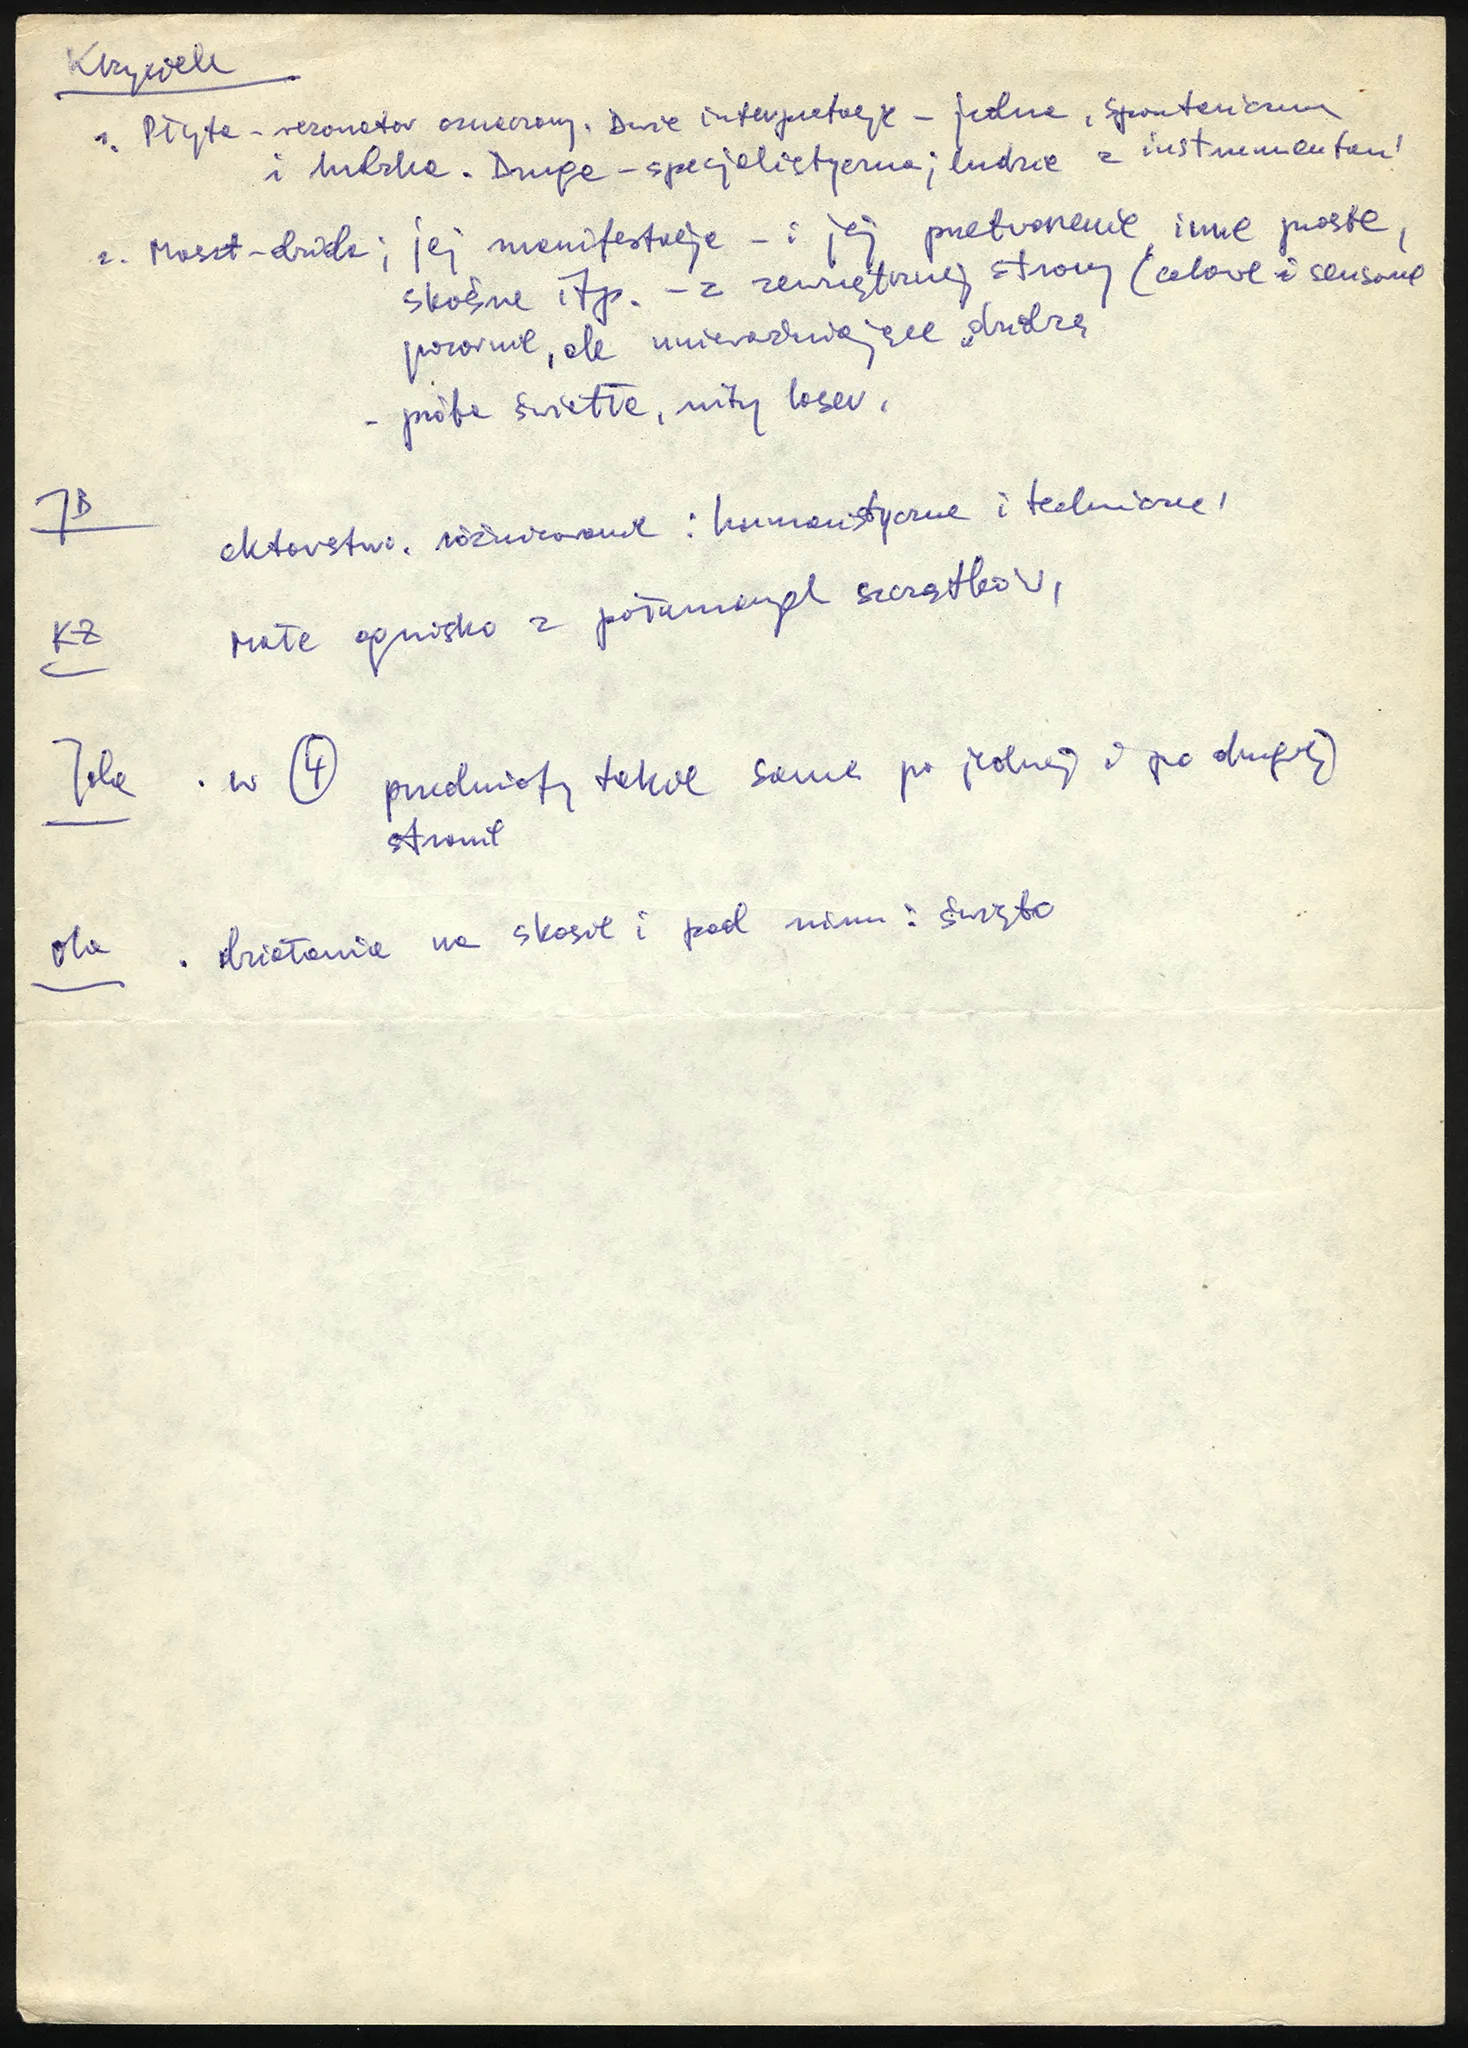 Krzysiek
1. Płyta - rezonator oznaczony. Dwie interpretacje - jedna, spontaniczna
i ludzka. Druga - specjalistyczna; ludzie z instrumentami
2. Maszt - dzida; jej manifestacje - i jej przetworzenie inne proste,
skośne itp. - z zewnętrznej strony (celowe i sensowne
pozornie, ale unieważniające „dzidzę
- próba światła, nity laser.
JB
aktorstwo. różnicowanie : humanistyczne i techniczne!
KZ
Małe ognisko z połamanych szczątków,
Jola . w 4 przedmioty takie same po jednej i po drugiej
stronie
Ola . działania na skosie i pod nim : święto